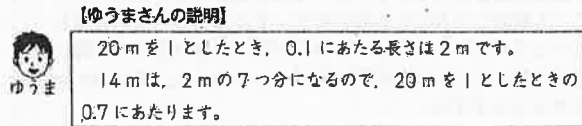 【ゆうまさんの説明】
20mを1としたとき，0.1にあたる長さは2mです。
14mは，2mの7つ分になるので，20mを1としたときの
0.7にあたります。
ゆうま